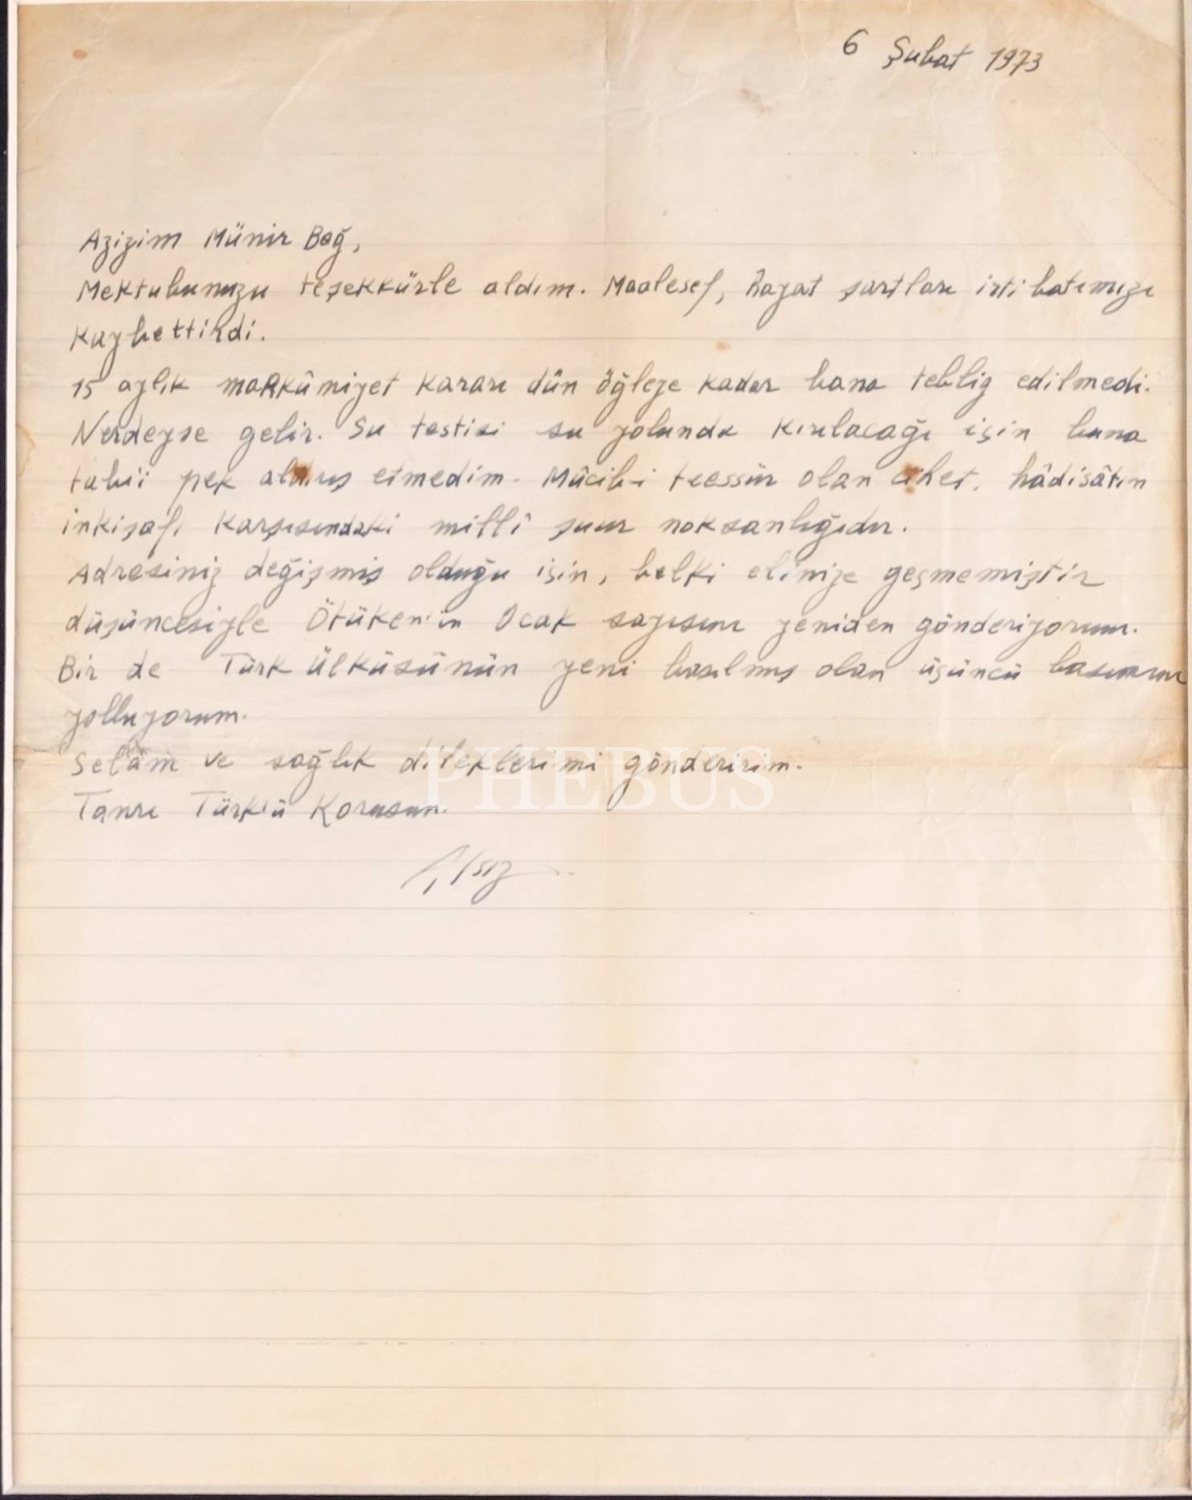 6 Şubat 1973
Azizim Münir Beğ,
Mektubunuzu teşekkürle aldım. Maalesef, hayat şartları irtibatımızı
kaybettirdi.
15 aylık mahkûmiyet kararı dün öğleye kadar bana tebliğ edilmedi.
Nerdeyse gelir. Su testisi su yolunda kırılacağı için buna
tabiî pek aldırış etmedim. Mûcib-i teessür olan cihet, hâdisâtın
inkişafı karşısındaki millî şuur noksanlığıdır.
Adresiniz değişmiş olduğu için, belki elinize geçmemiştir
düşüncesiyle Ötüken'in Ocak sayısını yeniden gönderiyorum.
Bir de Türk Ülküsünün yeni basılmış olan üçüncü basımını
yolluyorum.
Selâm ve sağlık dileklerimi gönderirim.
PHEBUS
Tanrı Türk'ü Korusun.
Atsız